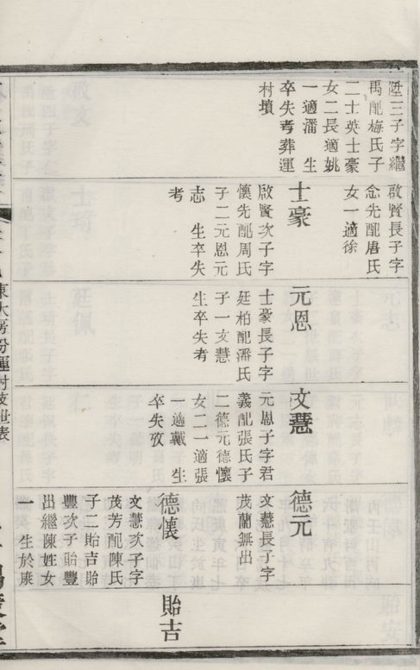 陞三子字繼
禹配梅氏子
二士英士豪
女二長適姚
一適潘 生
卒失考葬運
村墳
啟賢長子字
念先配唐氏
女一適徐
士豪
啟賢次子字
懷先配周氏
子二元恩元
志 生卒失
考
元恩
士豪長子字
廷柏配潘氏
子一文慧
生卒失考
文慧
元恩子字君
義配張氏子
二德元德懷
女二一適張
一適戴 生
卒失攷
德元
文慧長子字
茂蘭無出
德懷
文慧次子字
茂芳配陳氏
子二貽吉貽
豐次子貽豐
出繼陳姓女
一 生於康
貽吉
東大房份運村支世表